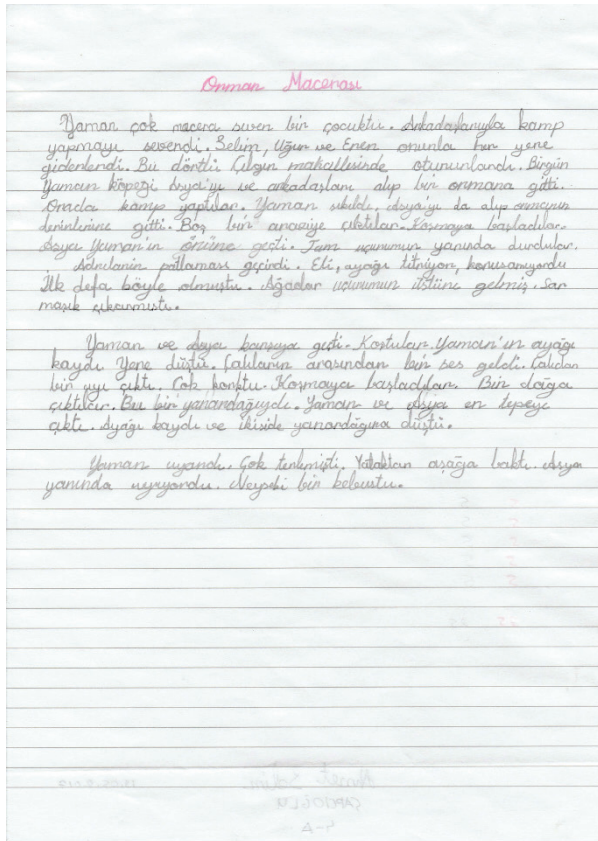 Orman Macerası
Yaman çok macera seven bir çocuktu. Arkadaşlarıyla kamp
yapmayı severdi. Selim, Uğur ve Eren onunla her yere
giderlerdi. Bu dörtlü Çılgın mahallesinde otururlardı. Birgün
Yaman köpeği Asya'yı ve arkadaşları alıp bir ormana gitti.
Orada kamp yaptılar. Yaman sıkıldı, Asya'yı da alıp ormanın
derinlerine gitti. Boş bir araziye çıktılar. Koşmaya başladılar.
Asya Yaman'ın önüne geçti. Tam uçurumun yanında durdular.
Adrelanin patlaması geçirdi. Eli, ayağı titriyor, konuşamıyordu
İlk defa böyle olmuştu. Ağaçlar uçurumun üstüne gelmiş. Sar
maşık çıkarmıştı.
Yaman ve Asya karşıya geçti. Koştular. Yaman'ın ayağı
kaydı Yere düştü. Çalıların arasından bir ses geldi. Çalıdan
bir ayı çıktı. Çok korktu. Koşmaya başladılar. Bir dağa
çıktılar. Bu bir yanardağıydı. Yaman ve Asya en tepeye
çıktı. Ayağı kaydı ve ikiside yanardağına düştü.
Yaman uyandı. Çok terlemişti. Yataktan aşağa baktı. Asya
yanında uyuyordu. Neyseki bir kabustu.